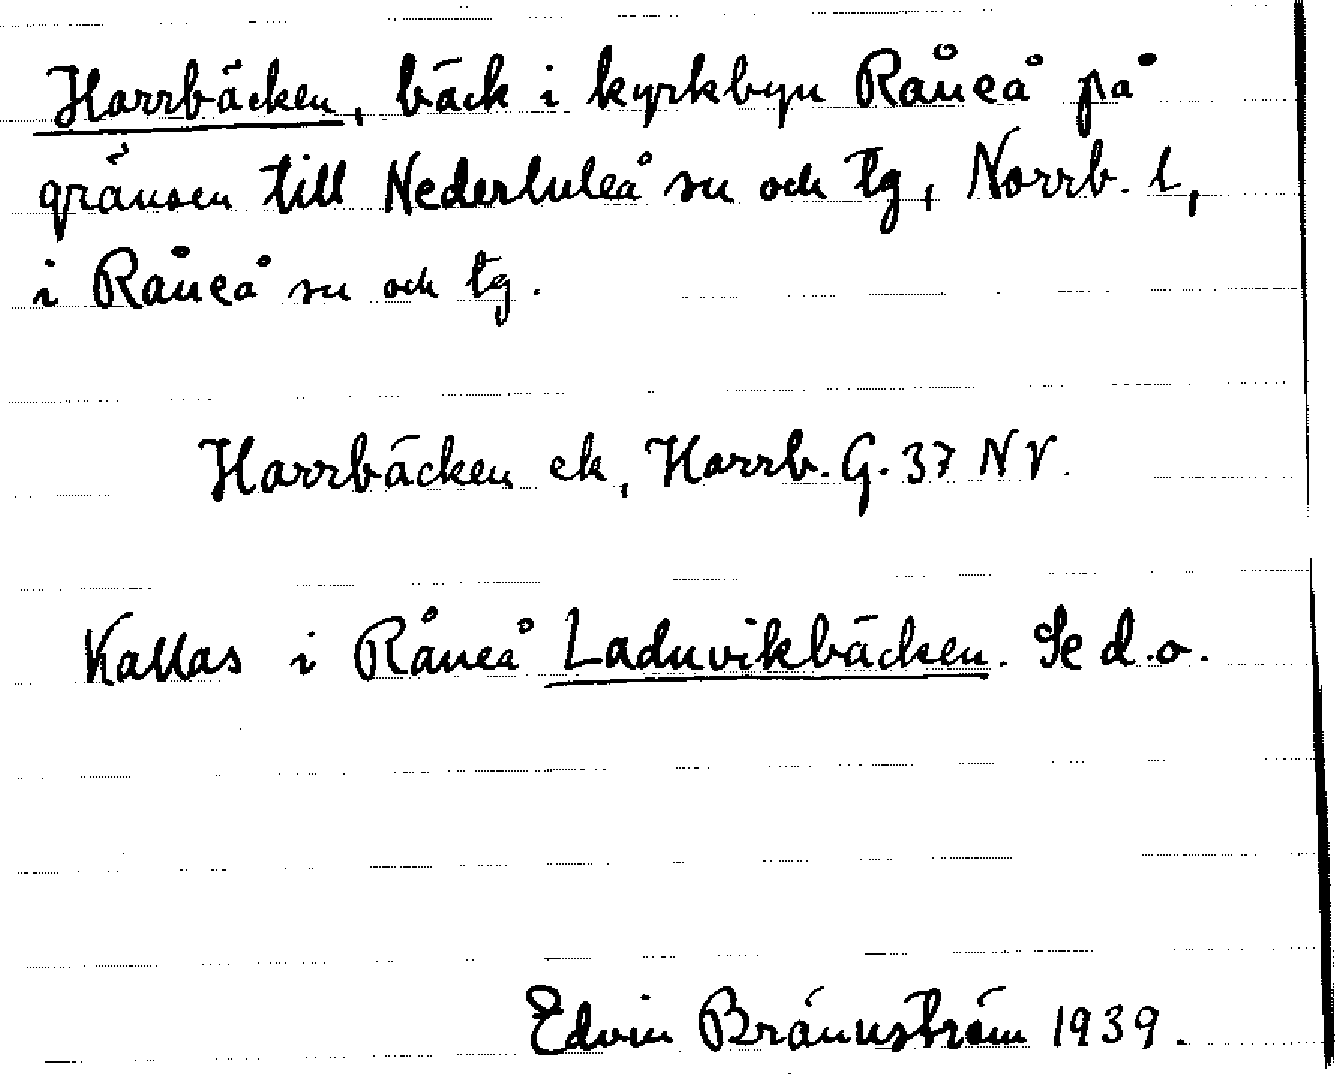 Harrbäcken, bäck i kyrkbyn Råneå på
gränsen till Nederluleå sn och tg, Norrb. l,
i Råneå sn och tg.
Harrbäcken ek, Harrb. G. 37 NV.
Kallas i Råneå Laduvikbäcken. Se d.o.
Edvin Brännström 1939.